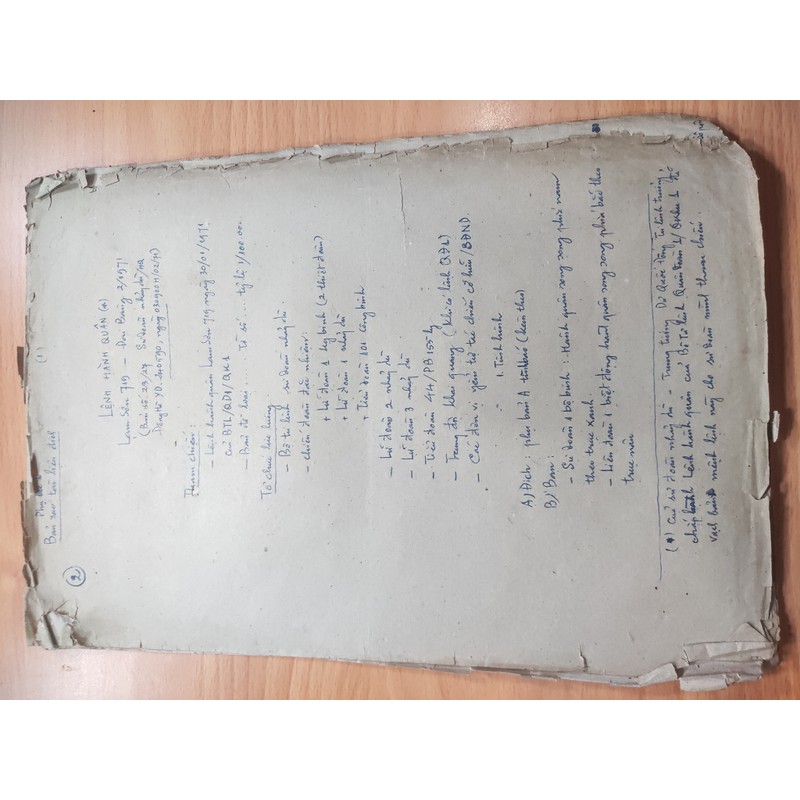 Bản sao tài liệu địch
(1)
2
LỆNH HÀNH QUÂN (*)
Lam Sơn 719 - Đơn Bung 2/1971
(Bản số 23/27 Sư đoàn nhảy dù/HQ
Đông Hà YD. 240590, ngày 030900H/02/71)
Tham chiếu:
- Lệnh hành quân Lam Sơn 719 ngày 30/01/1971
của BTL/QĐ1/QK1
- Bản đồ loại ..... Tờ số .... tỷ lệ 1/100.000
Tổ chức lực lượng
- Bộ tư lệnh sư đoàn nhảy dù.
- Chiến đoàn đặc nhiệm:
+ Lữ đoàn 1 kỵ binh (2 thiết đoàn)
+ Lữ đoàn 1 nhảy dù
+ Tiểu đoàn 101 công binh
- Lữ đoàn 2 nhảy dù
- Lữ đoàn 3 nhảy dù
- Tiểu đoàn 44/PB 155 ly
- Trung đội khai quang (khi có lệnh QĐ1)
- Các đơn vị yểm trợ tác chiến cơ hữu/SĐND.
1. Tình hình
A) Địch: phụ bản A tình báo (kèm theo)
B) Bạn:
- Sư đoàn 1 bộ binh: Hành quân song song phía nam
theo trục xanh.
- Liên đoàn 1 biệt động hành quân song song phía bắc theo
trục nâu
(*) Của sư đoàn nhảy dù - Trung tướng Dư Quốc Đống Tư lệnh trưởng,
chấp hành Lệnh hành quân của Bộ Tư lệnh Quân đoàn 1/Quân khu 1 để
vạch bản mệnh lệnh này cho sư đoàn mình tham chiến.